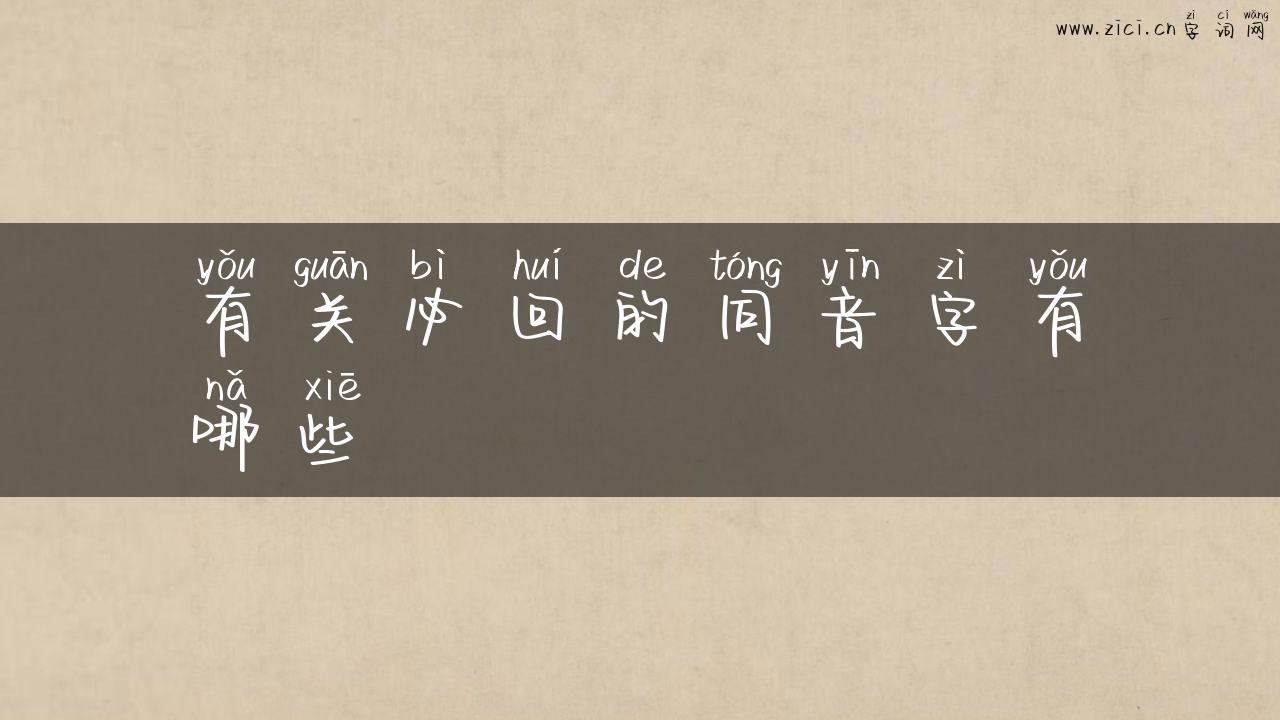 zì cí wǎng
www.zici.cn 字词网
yǒu guān bì huí de tóng yīn zì yǒu
有关必回的同音字有
nǎ xiē
哪些